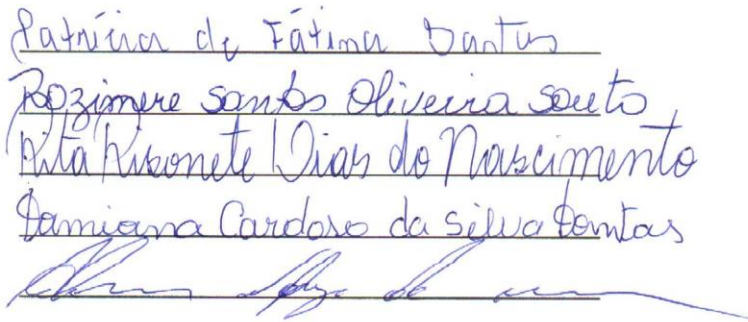 Patrícia de Fátima Dantas
Rozimere Santos Oliveira Souto
Rita Rizonete Dias do Nascimento
Damiana Cardoso da Silva Dantas